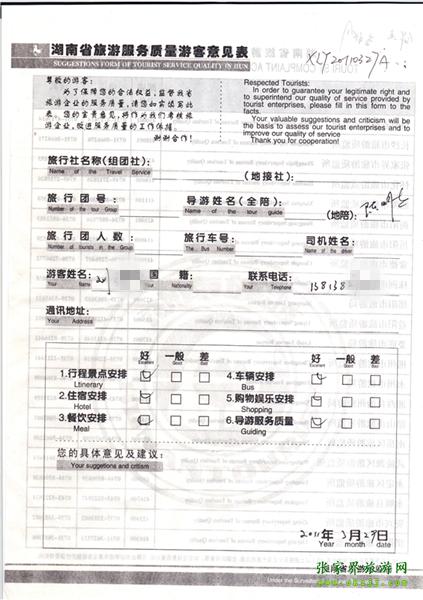 湖南省旅游服务质量游客意见表
SUGGESTIONS FORM OF TOURIST SERVICE QUALITY IN HUN
XLY20110327A
尊敬的游客:
为了保障您的合法权益,监督我省
旅游企业的服务质量,请您如实填写此
表。您的宝贵意见,将作为我们考核旅
游企业,改进服务质量的工作依据。
谢谢合作!
Respected Tourists:
In order to guarantee your legitimate right and
to superintend our quality of service provided by
tourist enterprises, please fill in this form to the
facts.
Your valuable suggestions and criticism will
be the basis to assess our tourist enterprises and to
improve our quality of service
Thank you for cooperation!
旅行社名称(组团社): (地接社):
Name of the Travel Service
旅行团号: 导游姓名(全陪): (地陪):
Number of the tour Group Name of the tour guide
旅行团人数: 旅行车号: 司机姓名:
Number of tourists in the Group The Bus Number Name of the driver
游客姓名: 国籍: 联系电话: 158138
Your Name Your Nationality Your Telephone
通讯地址:
Your Address
好 一般 差 好 一般 差
Excellent Good Bad Excellent Good Bad
1.行程景点安排 4.车辆安排
Ltinerary Bus
2.住宿安排 5.购物娱乐安排
Hotel Shopping
3.餐饮安排 6.导游服务质量
Meal Guiding
您的具体意见及建议:
Your suggetions and critism
2011年3月29日
Year month date
张家界旅游网
Under the Surveill